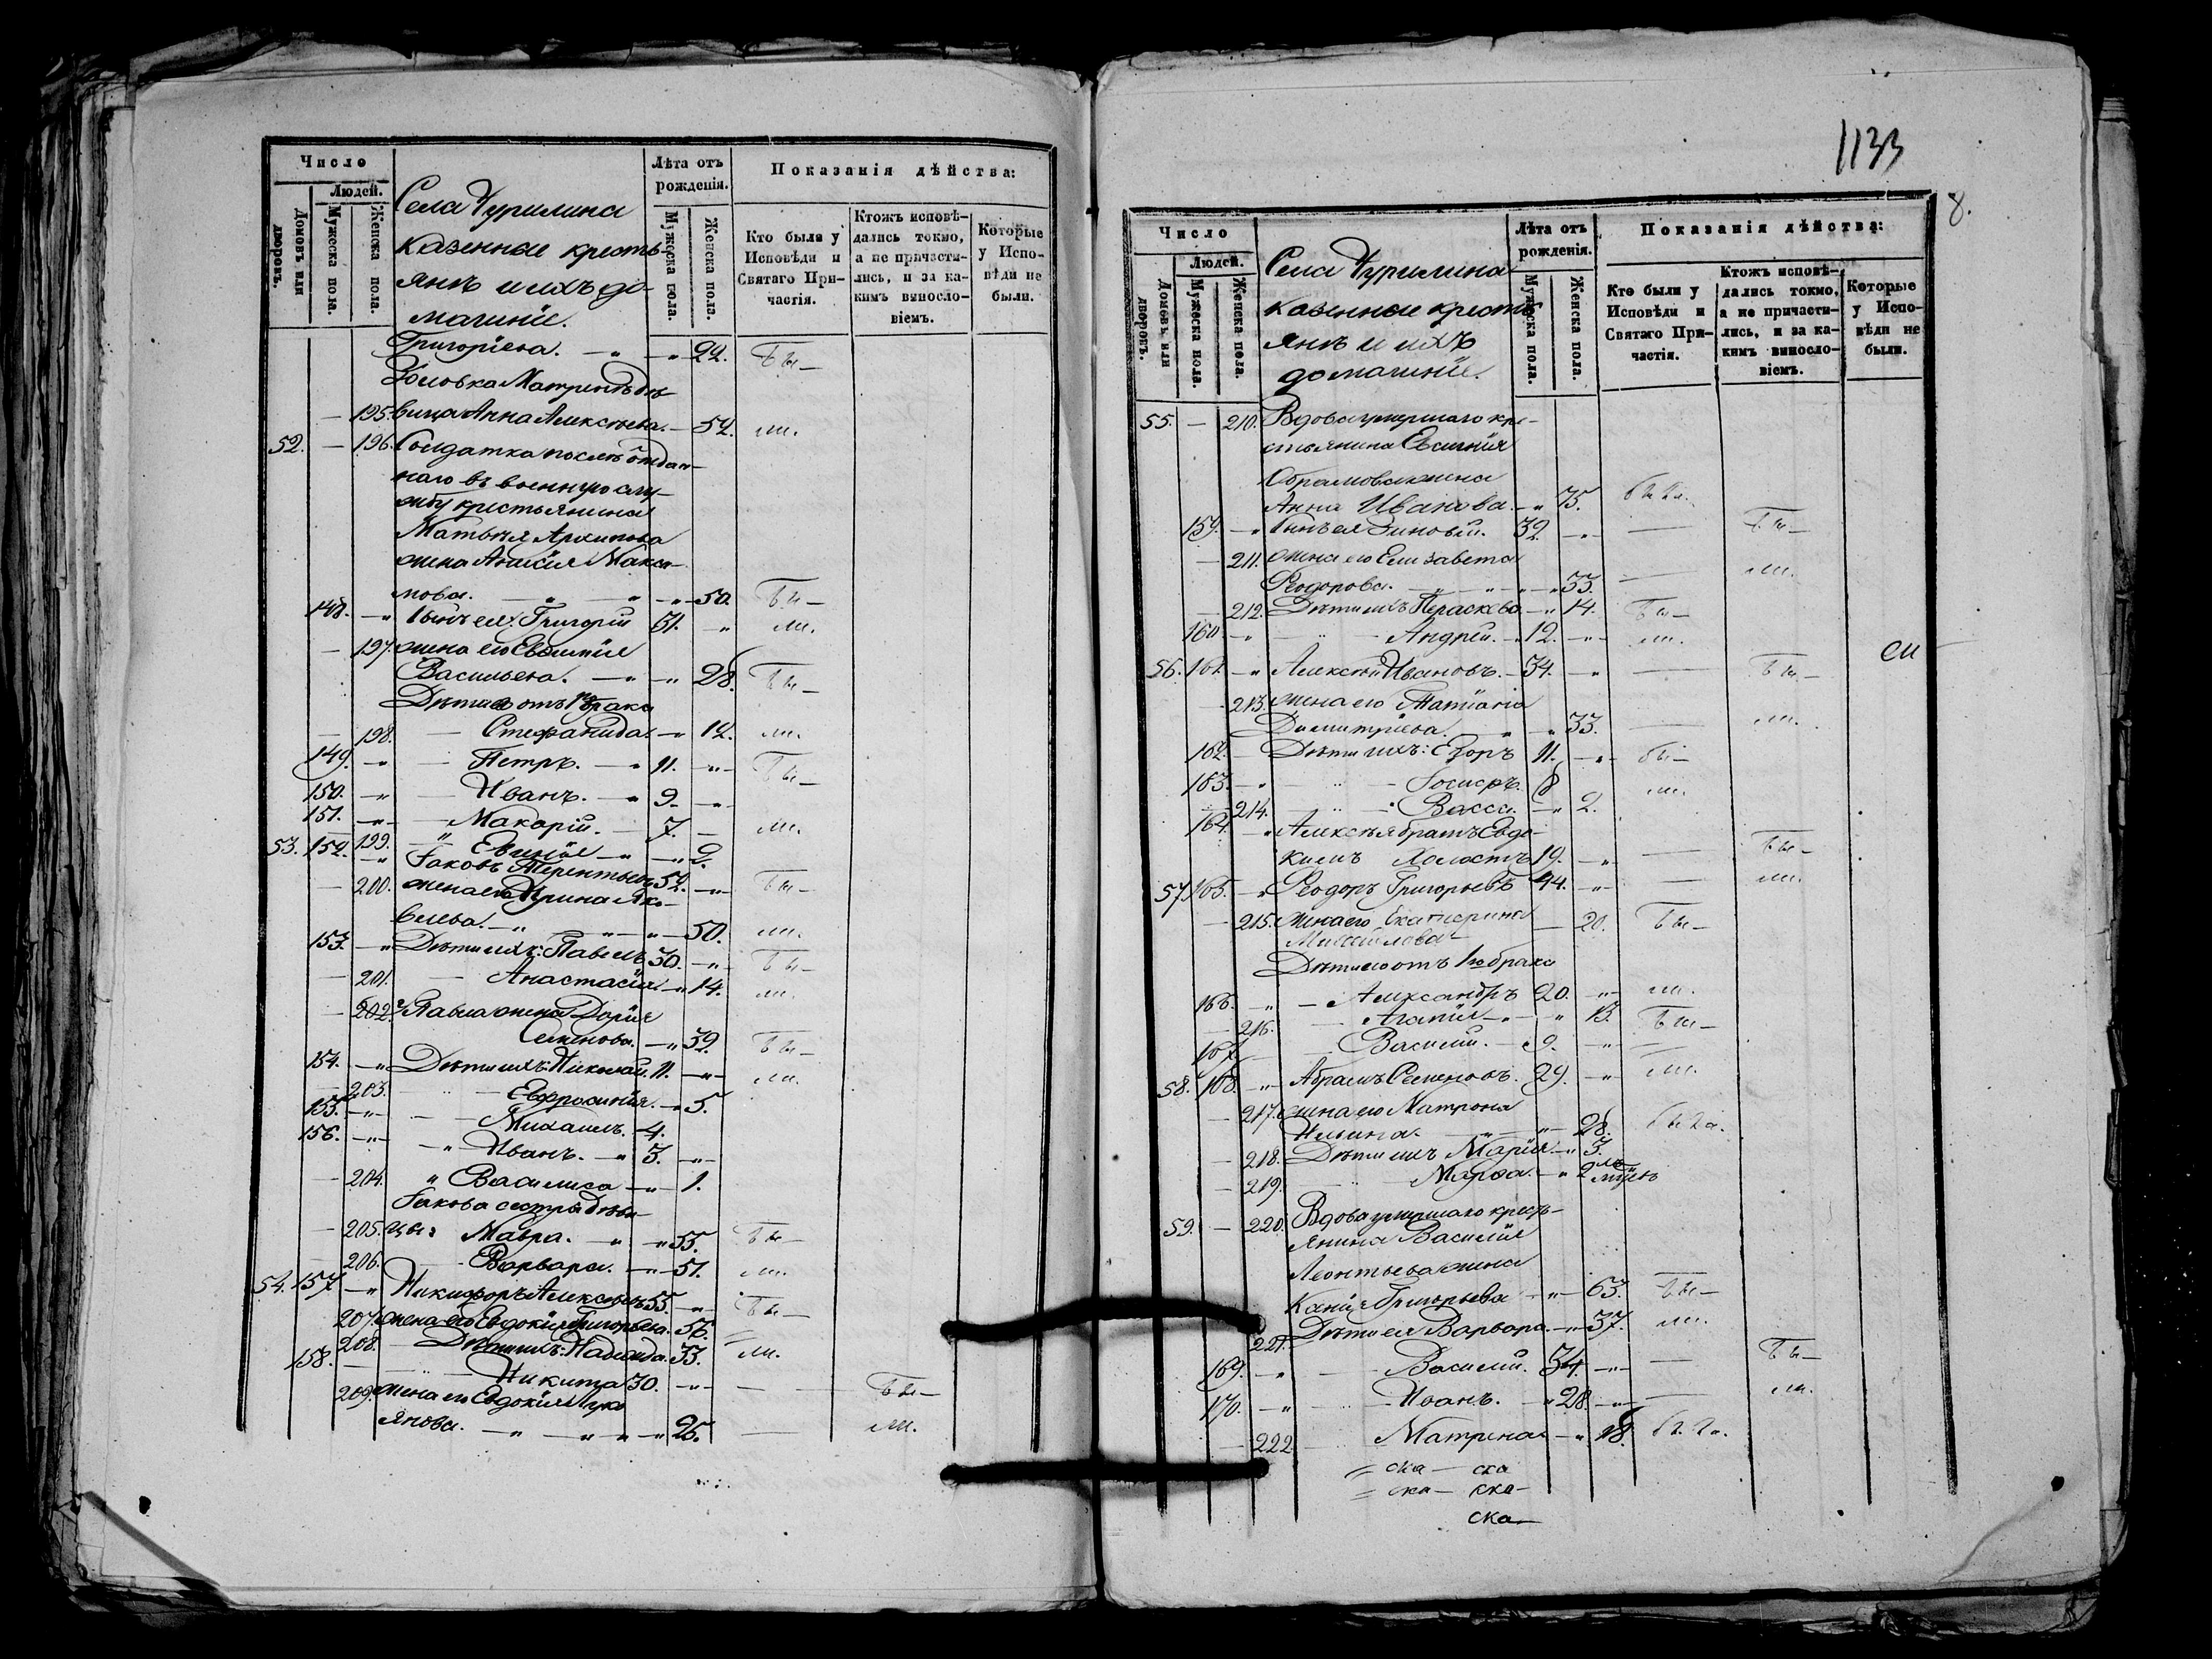 Число
Людей.
Домовъ или дворовъ.
Мужеска пола.
Женска пола.
Села Чурилина
казенные кресть-
янѣ и ихъ до-
машніе.
Лѣта отъ
рожденія.
Мужеска пола.
Женска пола.
Показанія дѣйства:
Кто были у
Исповѣди и
Святаго При-
частія.
Ктожъ исповѣ-
дались токмо,
а не причасти-
лись, и за ка-
кимъ винослo-
віемъ.
Которые
у Испо-
вѣди не
были.
Григорiева. — „ — „ 22. бы —
Золовка Матрены дѣ-
— 195. вица Анна Алексѣева. — 52. ли.
52. — 196. Солдатка послѣ отдан-
наго въ военную слу-
жбу крестьянина
Матвѣя Архипова
жена Анисія Макси-
мова. — „ — „ — „ 50. бы —
148. — „ Сынъ ея: Григорій 31. — „ ли.
— 197. жена его Евѳимія
Васильева. — „ — „ 28. бы —
Дѣти его отъ 1го брака
— 198. — Стефанида. — „ 12. ли.
149. — „ — Петръ. — „ 11. — „ — бы —
150. — „ — Иванъ. — „ 9. — „
151. — „ — Макарій. — 7. — ли.
199. „ Евѳимія — „ — „ 2.
53. 152. — „ Іаковъ Терентьевъ 52. — „ — бы —
— 200. жена его Ирина Яко-
влева. — „ — „ — „ 50. ли.
153. — „ Дѣти ихъ: Павелъ 30. — „ — бы —
— 201. — Анастасія — „ 14. ли.
— 202. Павла жена Дарія
Семенова. — „ 32. бы —
154. — „ Дѣти ихъ: Николай. 11. — „ — ли.
— 203. — „ — Евфросинія. — „ 5.
155. — „ — — Михаилъ. 4.
156. — „ — — „ Иванъ. — „ 3. — „ —
— 204. „ Василиса — „ — 1.
Іакова сестры дѣви-
— 205. цы: Мавра. — „ „ 55. бы —
206. — Варвара. — „ — 51. ли.
54. 157 — „ Никифоръ Алексѣевъ 55. — „ бы —
207. жена его Евдокія Григорьева. 56.
208. — Дѣти ихъ: Надежда. 33. ли.
158. — — Никита 30. — „ — — бы —
209. жена его Евдокія Лукі-
янова. — „ — „ — „ — „ 25. — ли.
1133
8.
Число
Людей.
Домовъ или дворовъ.
Мужеска пола.
Женска пола.
Села Чурилина
казенные кресть-
янѣ и ихъ
домашніе.
Лѣта отъ
рожденія.
Мужеска пола.
Женска пола.
Показанія дѣйства:
Кто были у
Исповѣди и
Святаго При-
частія.
Ктожъ исповѣ-
дались токмо,
а не причасти-
лись, и за ка-
кимъ винослo-
віемъ.
Которые
у Испо-
вѣди не
были.
55. — 210. Вдова умершаго кре-
стьянина Евѳимія
Абрамова жена
Анна Иванова. — „ 75. была.
159. — „ Сынъ ея Зиновій. 32. — „ — — бы —
— 211. жена его Елизавета
Ѳеодорова. — „ — „ — „ 33. — ли.
— 212. Дѣти ихъ Параскева. — „ 14. бы —
160. — „ — „ — Андрей. — „ 12. — „ — ли.
56. 161. — „ Алексѣй Ивановъ. — 34. — „ — бы — ли
— 213. жена его Татіана
Димитріева. — „ „ 33. — ли.
162. — Дѣти ихъ: Егоръ 11. — „ — бы —
163. — „ — „ — Іосифъ. 8 ли.
— 214. — „ — Васса. — „ 2.
164. — „ Алексѣя братъ Евдо-
кимъ Холостъ 19. — „ — бы —
57. 165. — „ Ѳеодоръ Григорьевъ 44. — „ — — ли.
— 215. жена его Екатерина
Михайлова — — 20. бы —
Дѣти его отъ 1го брака
166. — „ — Александръ 20. — „ — ли.
— 216. — Агапія — „ — „ 13. бы —
167. — — Василій. — 9. — „ —
58. 168. — „ Абрамъ Семеновъ. 29. — „ ли.
— 217. жена его Матрона
Ильина. — „ — „ — 28. была.
— 218. Дѣти ихъ Марія — „ 3.
— 219. — Марѳа. — „ 2
59. — 220. Вдова умершаго кресть-
янина Василія
Леонтьева жена
Григорьева — „ — 63. бы —
221. Дѣти ея Варвара. — „ 37. ли.
169. — „ — Василій. 34. — „ — — бы —
170. — „ — Иванъ. — „ 28. — „ — — ли.
— 222. — Матрена — „ 18. была.
= ска — ска
= ска — ска —
ска —